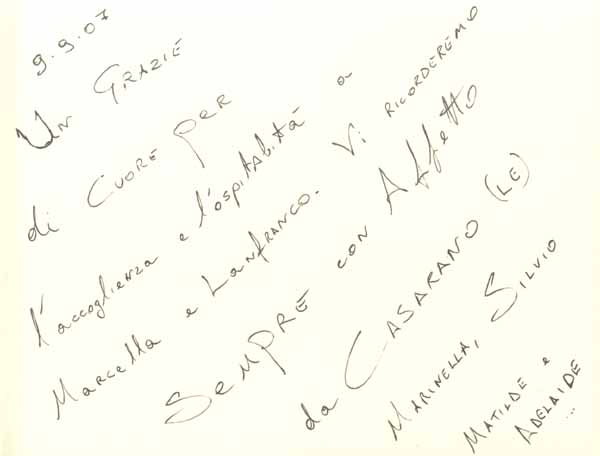 9.9.07
Un GRAZIE
di CUORE per
l'accoglienza e l'ospitalità a
Marcella e LANFRANCO. Vi RICORDEREMO
SEMPRE con Affetto
da CASARANO (LE)
MARINELLA, SILVIO
MATILDE e
ADELAIDE
...